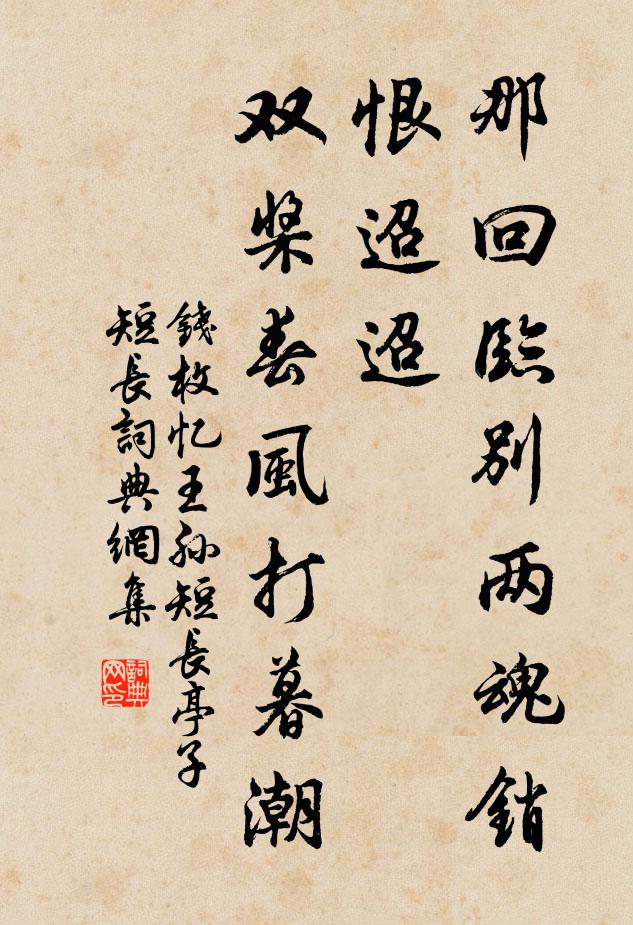 那回臨别两魂销
恨迢迢
双桨春風打暮潮
錢枚忆王孙短長亭子
短長詞典網集
詞典网印